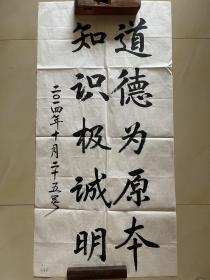 道德为原本
知识极诚明
二〇一四年十月二十五号